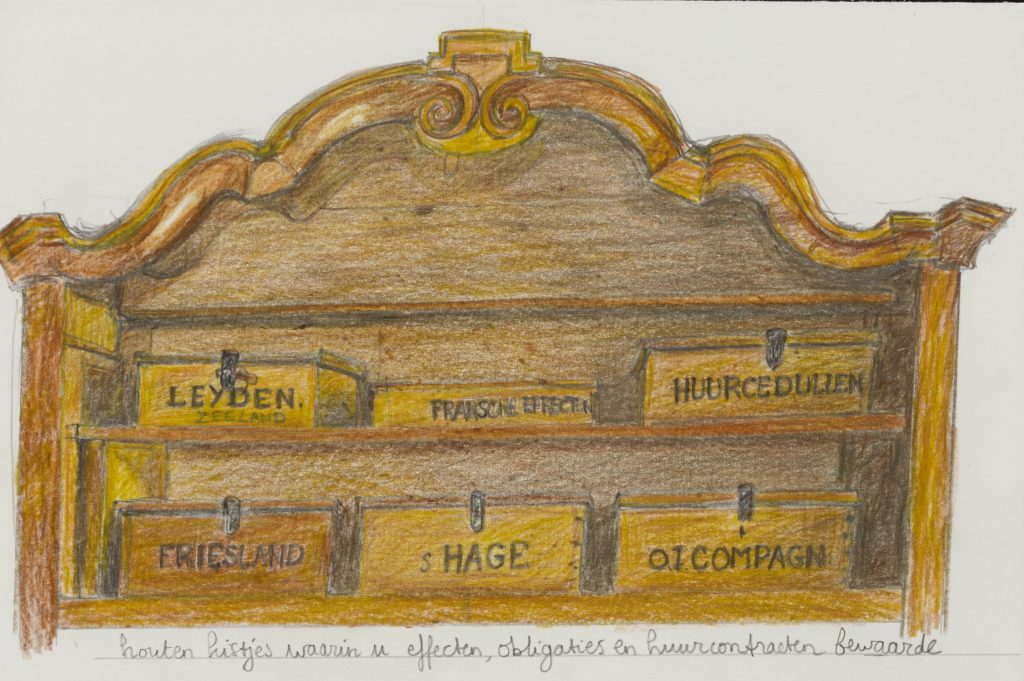 LEYDEN.
ZEELAND
FRANSCHE EFFECTEN
HUURCEDULLEN
FRIESLAND
s HAGE
O.I COMPAGN
houten kistjes waarin u effecten, obligaties en huurcontracten bewaarde